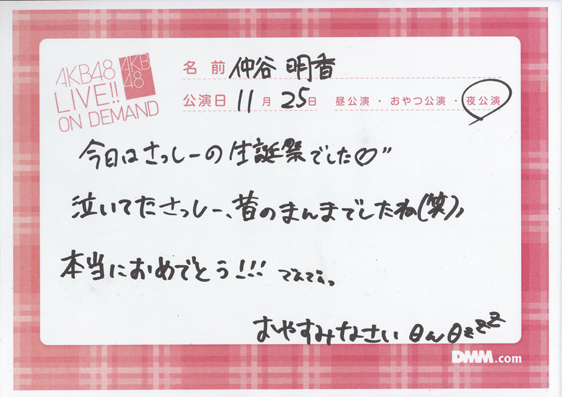 AKB48
LIVE!!
ON DEMAND
AKB
48
名前 仲谷 明香
公演日 11月25日 昼公演・おやつ公演・夜公演
今日はさっしーの生誕祭でした♡"
泣いてたさっしー、昔のまんまでしたね(笑)
本当におめでとう!!!
おやすみなさい θ人θzzz
DMM.com